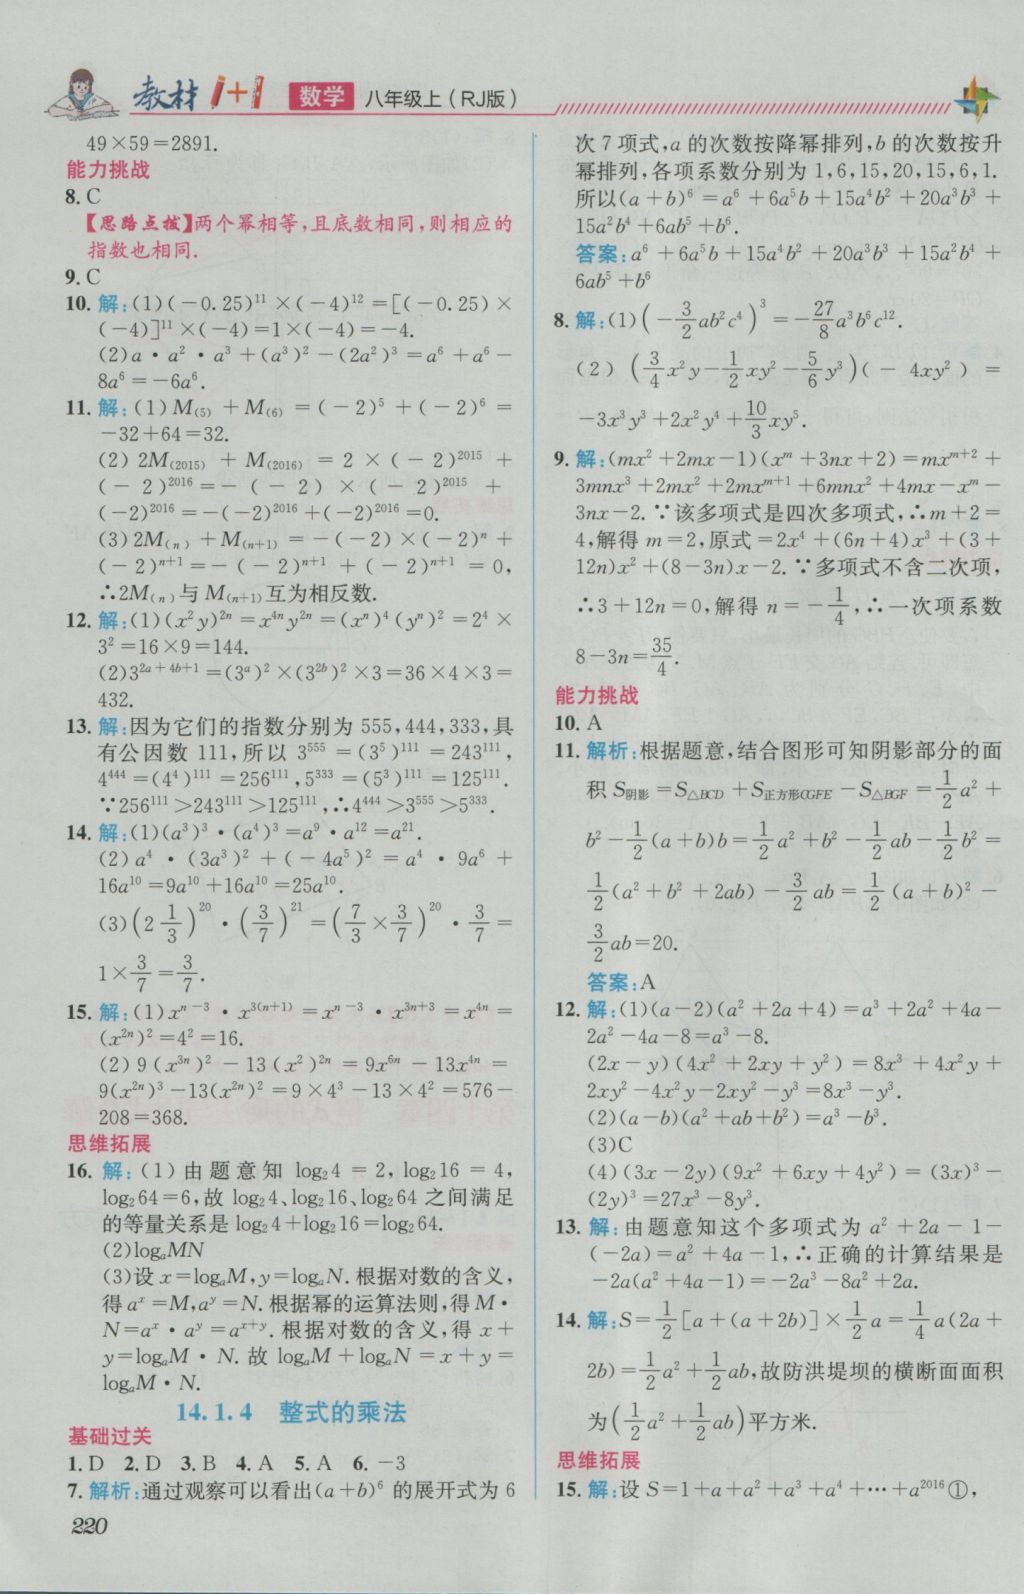 教材 1+1 数学 八年级上(RJ版)
49×59=2891.
能力挑战
8. C
【思路点拨】两个幂相等,且底数相同,则相应的
指数也相同.
9. C
10. 解:(1)(-0.25)¹¹×(-4)¹²=[(-0.25)×
(-4)]¹¹×(-4)=1×(-4)=-4.
(2)a·a²·a³+(a³)²-(2a²)³=a⁶+a⁶-
8a⁶=-6a⁶.
11. 解:(1)M₍₅₎+M₍₆₎=(-2)⁵+(-2)⁶=
-32+64=32.
(2)2M₍₂₀₁₅₎+M₍₂₀₁₆₎=2×(-2)²⁰¹⁵+
(-2)²⁰¹⁶=-(-2)×(-2)²⁰¹⁵+
(-2)²⁰¹⁶=-(-2)²⁰¹⁶+(-2)²⁰¹⁶=0.
(3)2M₍ₙ₎+M₍ₙ₊₁₎=-(-2)×(-2)ⁿ+
(-2)ⁿ⁺¹=-(-2)ⁿ⁺¹+(-2)ⁿ⁺¹=0,
∴2M₍ₙ₎与M₍ₙ₊₁₎互为相反数.
12. 解:(1)(x²y)²ⁿ=x⁴ⁿy²ⁿ=(xⁿ)⁴(yⁿ)²=2⁴×
3²=16×9=144.
(2)3^(2a+4b+1)=(3^a)²×(3^(2b))²×3=36×4×3=
432.
13. 解:因为它们的指数分别为555,444,333,具
有公因数111,所以3⁵⁵⁵=(3⁵)¹¹¹=243¹¹¹,
4⁴⁴⁴=(4⁴)¹¹¹=256¹¹¹,5³³³=(5³)¹¹¹=125¹¹¹.
∵256¹¹¹>243¹¹¹>125¹¹¹,∴4⁴⁴⁴>3⁵⁵⁵>5³³³.
14. 解:(1)(a³)³·(a⁴)³=a⁹·a¹²=a²¹.
(2)a⁴·(3a³)²+(-4a⁵)²=a⁴·9a⁶+
16a¹⁰=9a¹⁰+16a¹⁰=25a¹⁰.
(3)(2 1/3)²⁰·(3/7)²¹=(7/3×3/7)²⁰·3/7=
1×3/7=3/7.
15. 解:(1)xⁿ⁻³·x³⁽ⁿ⁺¹⁾=xⁿ⁻³·x³ⁿ⁺³=x⁴ⁿ=
(x²ⁿ)²=4²=16.
(2)9(x³ⁿ)²-13(x²)²ⁿ=9x⁶ⁿ-13x⁴ⁿ=
9(x²ⁿ)³-13(x²ⁿ)²=9×4³-13×4²=576-
208=368.
思维拓展
16. 解:(1)由题意知log₂4=2,log₂16=4,
log₂64=6,故log₂4、log₂16、log₂64之间满足
的等量关系是log₂4+log₂16=log₂64.
(2)logₐMN
(3)设x=logₐM,y=logₐN.根据对数的含义,
得aˣ=M,aʸ=N.根据幂的运算法则,得M·
N=aˣ·aʸ=aˣ⁺ʸ.根据对数的含义,得x+
y=logₐM·N.故logₐM+logₐN=x+y=
logₐM·N.
14.1.4 整式的乘法
基础过关
1. D 2. D 3. B 4. A 5. A 6. -3
7. 解析:通过观察可以看出(a+b)⁶的展开式为6
220
次7项式,a的次数按降幂排列,b的次数按升
幂排列,各项系数分别为1,6,15,20,15,6,1.
所以(a+b)⁶=a⁶+6a⁵b+15a⁴b²+20a³b³+
15a²b⁴+6ab⁵+b⁶.
答案:a⁶+6a⁵b+15a⁴b²+20a³b³+15a²b⁴+
6ab⁵+b⁶
8. 解:(1)(-3/2 ab²c⁴)³=-27/8 a³b⁶c¹².
(2)(3/4 x²y-1/2 xy²-5/6 y³)(-4xy²)=
-3x³y³+2x²y⁴+10/3 xy⁵.
9. 解:(mx²+2mx-1)(xᵐ+3nx+2)=mxᵐ⁺²+
3mnx³+2mx²+2mxᵐ⁺¹+6mnx²+4mx-xᵐ-
3nx-2.∵该多项式是四次多项式,∴m+2=
4,解得m=2,原式=2x⁴+(6n+4)x³+(3+
12n)x²+(8-3n)x-2.∵多项式不含二次项,
∴3+12n=0,解得n=-1/4,∴一次项系数
8-3n=35/4.
能力挑战
10. A
11. 解析:根据题意,结合图形可知阴影部分的面
积S阴影=S△BCD+S正方形CGFE-S△BGF=1/2 a²+
b²-1/2(a+b)b=1/2 a²+b²-1/2 ab-1/2 b²=
1/2(a²+b²+2ab)-3/2 ab=1/2(a+b)²-
3/2 ab=20.
答案:A
12. 解:(1)(a-2)(a²+2a+4)=a³+2a²+4a-
2a²-4a-8=a³-8.
(2x-y)(4x²+2xy+y²)=8x³+4x²y+
2xy²-4x²y-2xy²-y³=8x³-y³.
(2)(a-b)(a²+ab+b²)=a³-b³.
(3)C
(4)(3x-2y)(9x²+6xy+4y²)=(3x)³-
(2y)³=27x³-8y³.
13. 解:由题意知这个多项式为a²+2a-1-
(-2a)=a²+4a-1,∴正确的计算结果是
-2a(a²+4a-1)=-2a³-8a²+2a.
14. 解:S=1/2[a+(a+2b)]×1/2 a=1/4 a(2a+
2b)=1/2 a²+1/2 ab,故防洪堤坝的横断面面积
为(1/2 a²+1/2 ab)平方米.
思维拓展
15. 解:设S=1+a+a²+a³+a⁴+…+a²⁰¹⁶①,